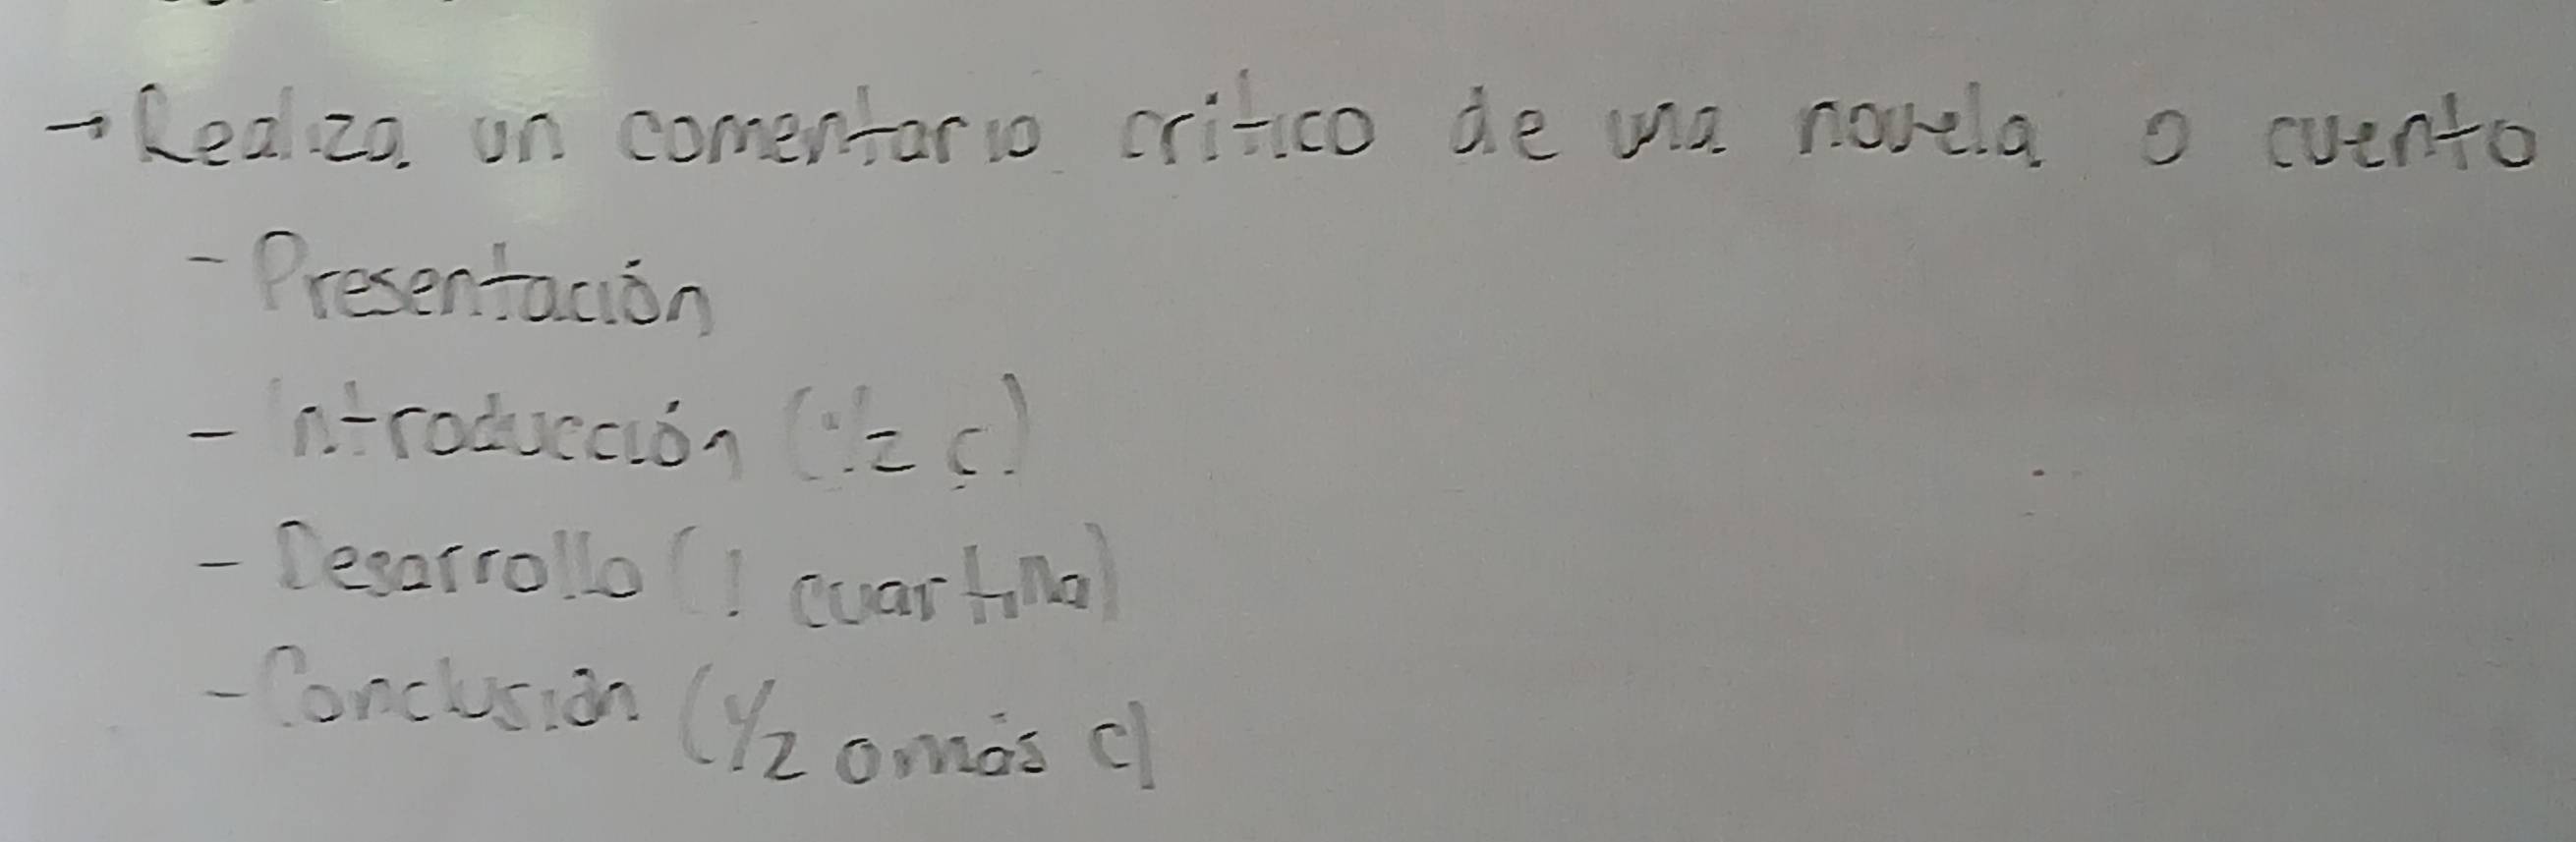 → Realiza un comentario crítico de una novela o cuento
- Presentación
- Introducción (1/2 c)
- Desarrollo (1 cuartilla)
- Conclusión (1/2 o más c)